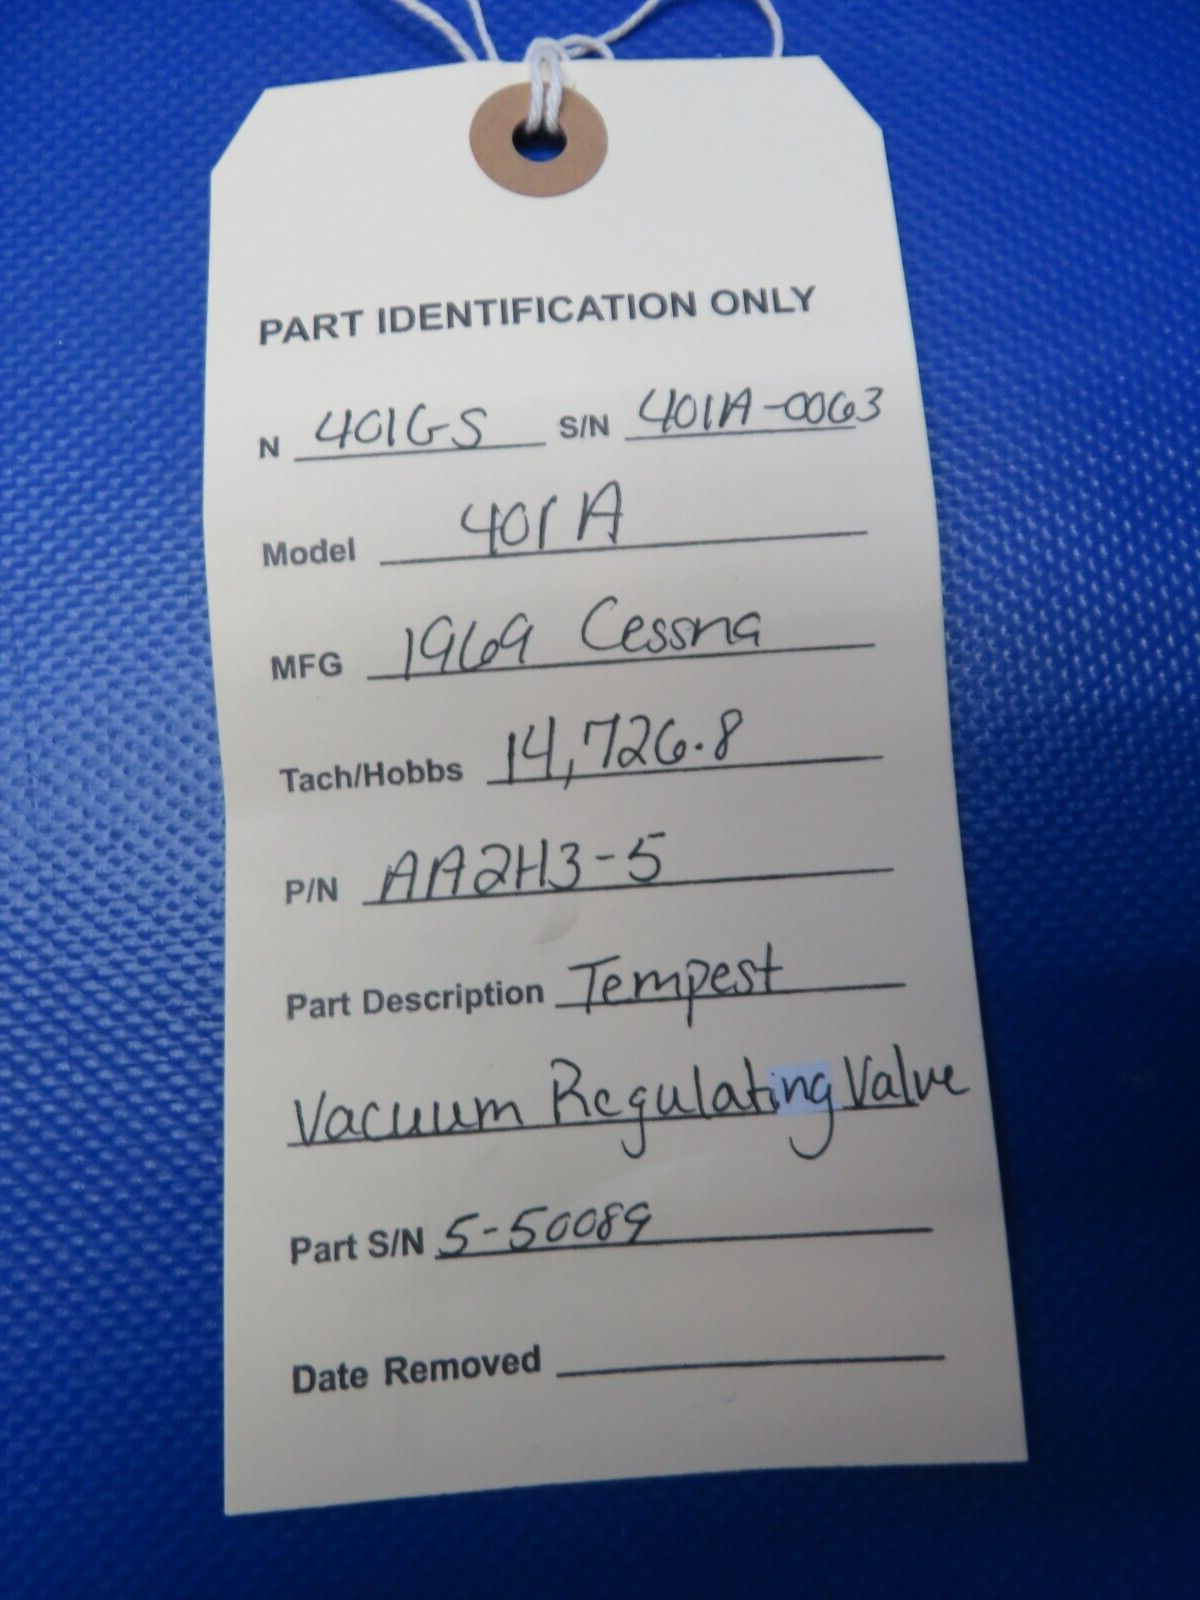 PART IDENTIFICATION ONLY
N 401GS S/N 401A-0063
Model 401A
MFG 1969 Cessna
Tach/Hobbs 14,726.8
P/N AA2H3-5
Part Description Tempest
Vacuum Regulating Valve
Part S/N 5-50089
Date Removed